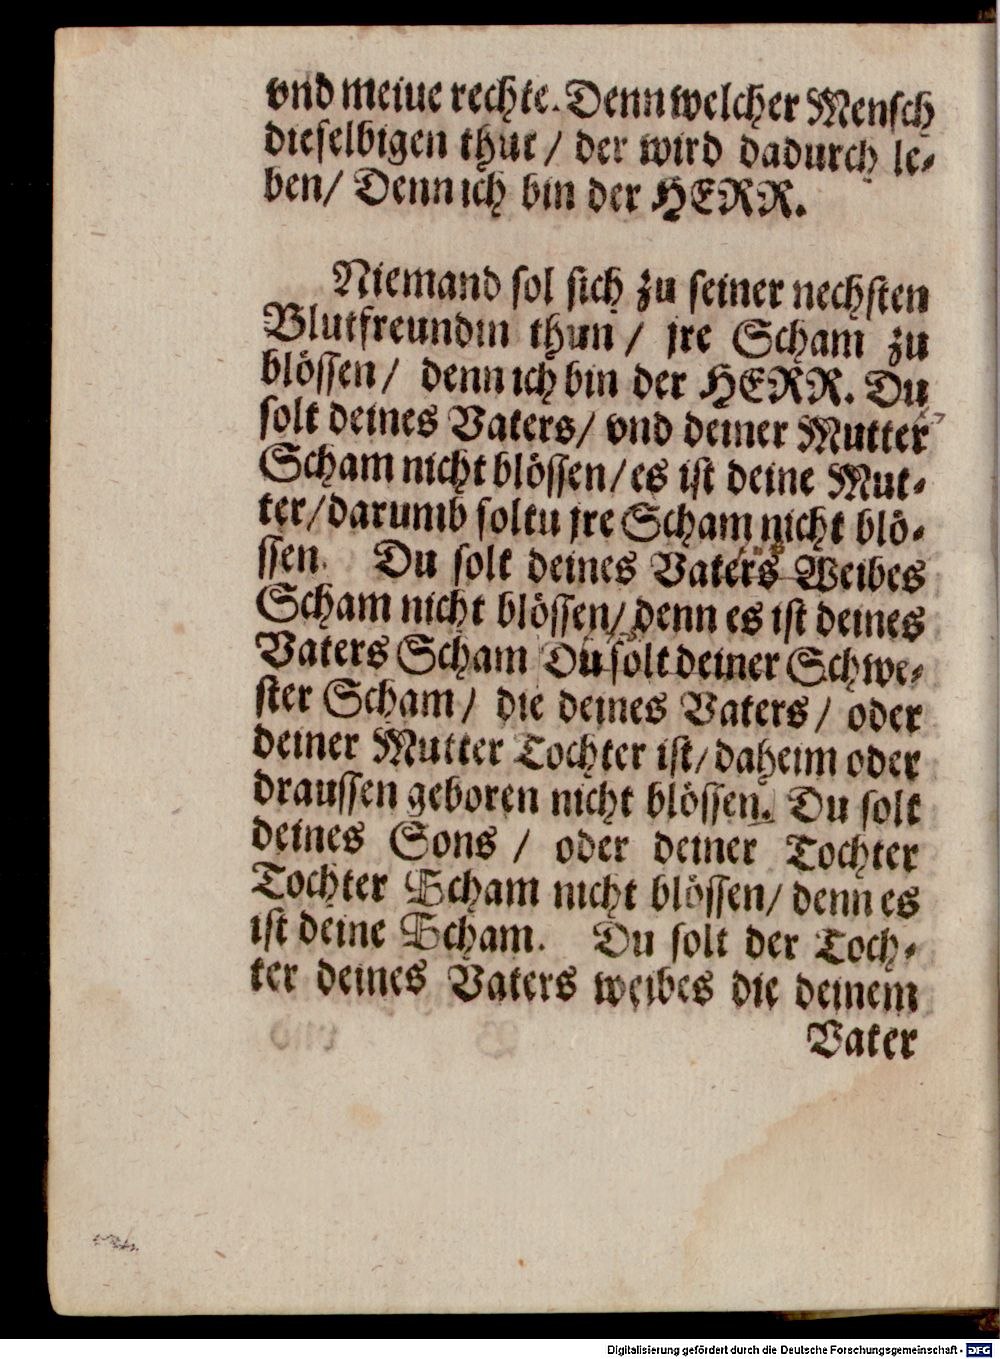 vnd meiue rechte. Denn welcher Mensch
dieselbigen thut / der wird dadurch le-
ben/ Denn ich bin der HERR.
Niemand sol sich zu seiner nechsten
Blutfreundin thun / jre Scham zu
blössen/ denn ich bin der HERR. Du
solt deines Vaters/ vnd deiner Mutter
Scham nicht blössen/ es ist deine Mut-
ter/darumb soltu jre Scham nicht blö-
ssen. Du solt deines Vaters Weibes
Scham nicht blössen/ denn es ist deines
Vaters Scham Du solt deiner Schwe-
ster Scham/ die deines Vaters/ oder
deiner Mutter Tochter ist/ daheim oder
draussen geboren nicht blössen. Du solt
deines Sons / oder deiner Tochter
Tochter Scham nicht blössen/ denn es
ist deine Scham. Du solt der Toch-
ter deines Vaters weibes die deinem
Vater
Digitalisierung gefördert durch die Deutsche Forschungsgemeinschaft - DFG